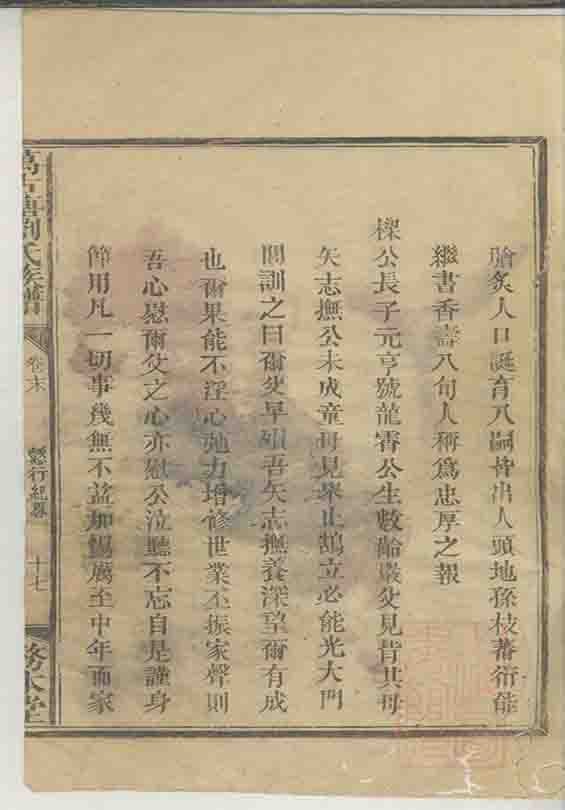 膾炙人口誕育八嗣皆出人頭地孫枝蕃衍能
繼書香壽八旬人稱為忠厚之報
樑公長子元亨號龍霄公生數齡嚴父見背其母
矢志撫公未成童母見舉止鵠立必能光大門
閭訓之曰爾父早殞吾矢志撫養深望爾有成
也爾果能不淫心弛力增修世業丕振家聲則
吾心慰爾父之心亦慰公泣聽不忘自是謹身
節用凡一切事幾無不益加惕厲至中年而家
萬古塘劉氏族譜
卷末
懿行紀畧
十七
務本堂